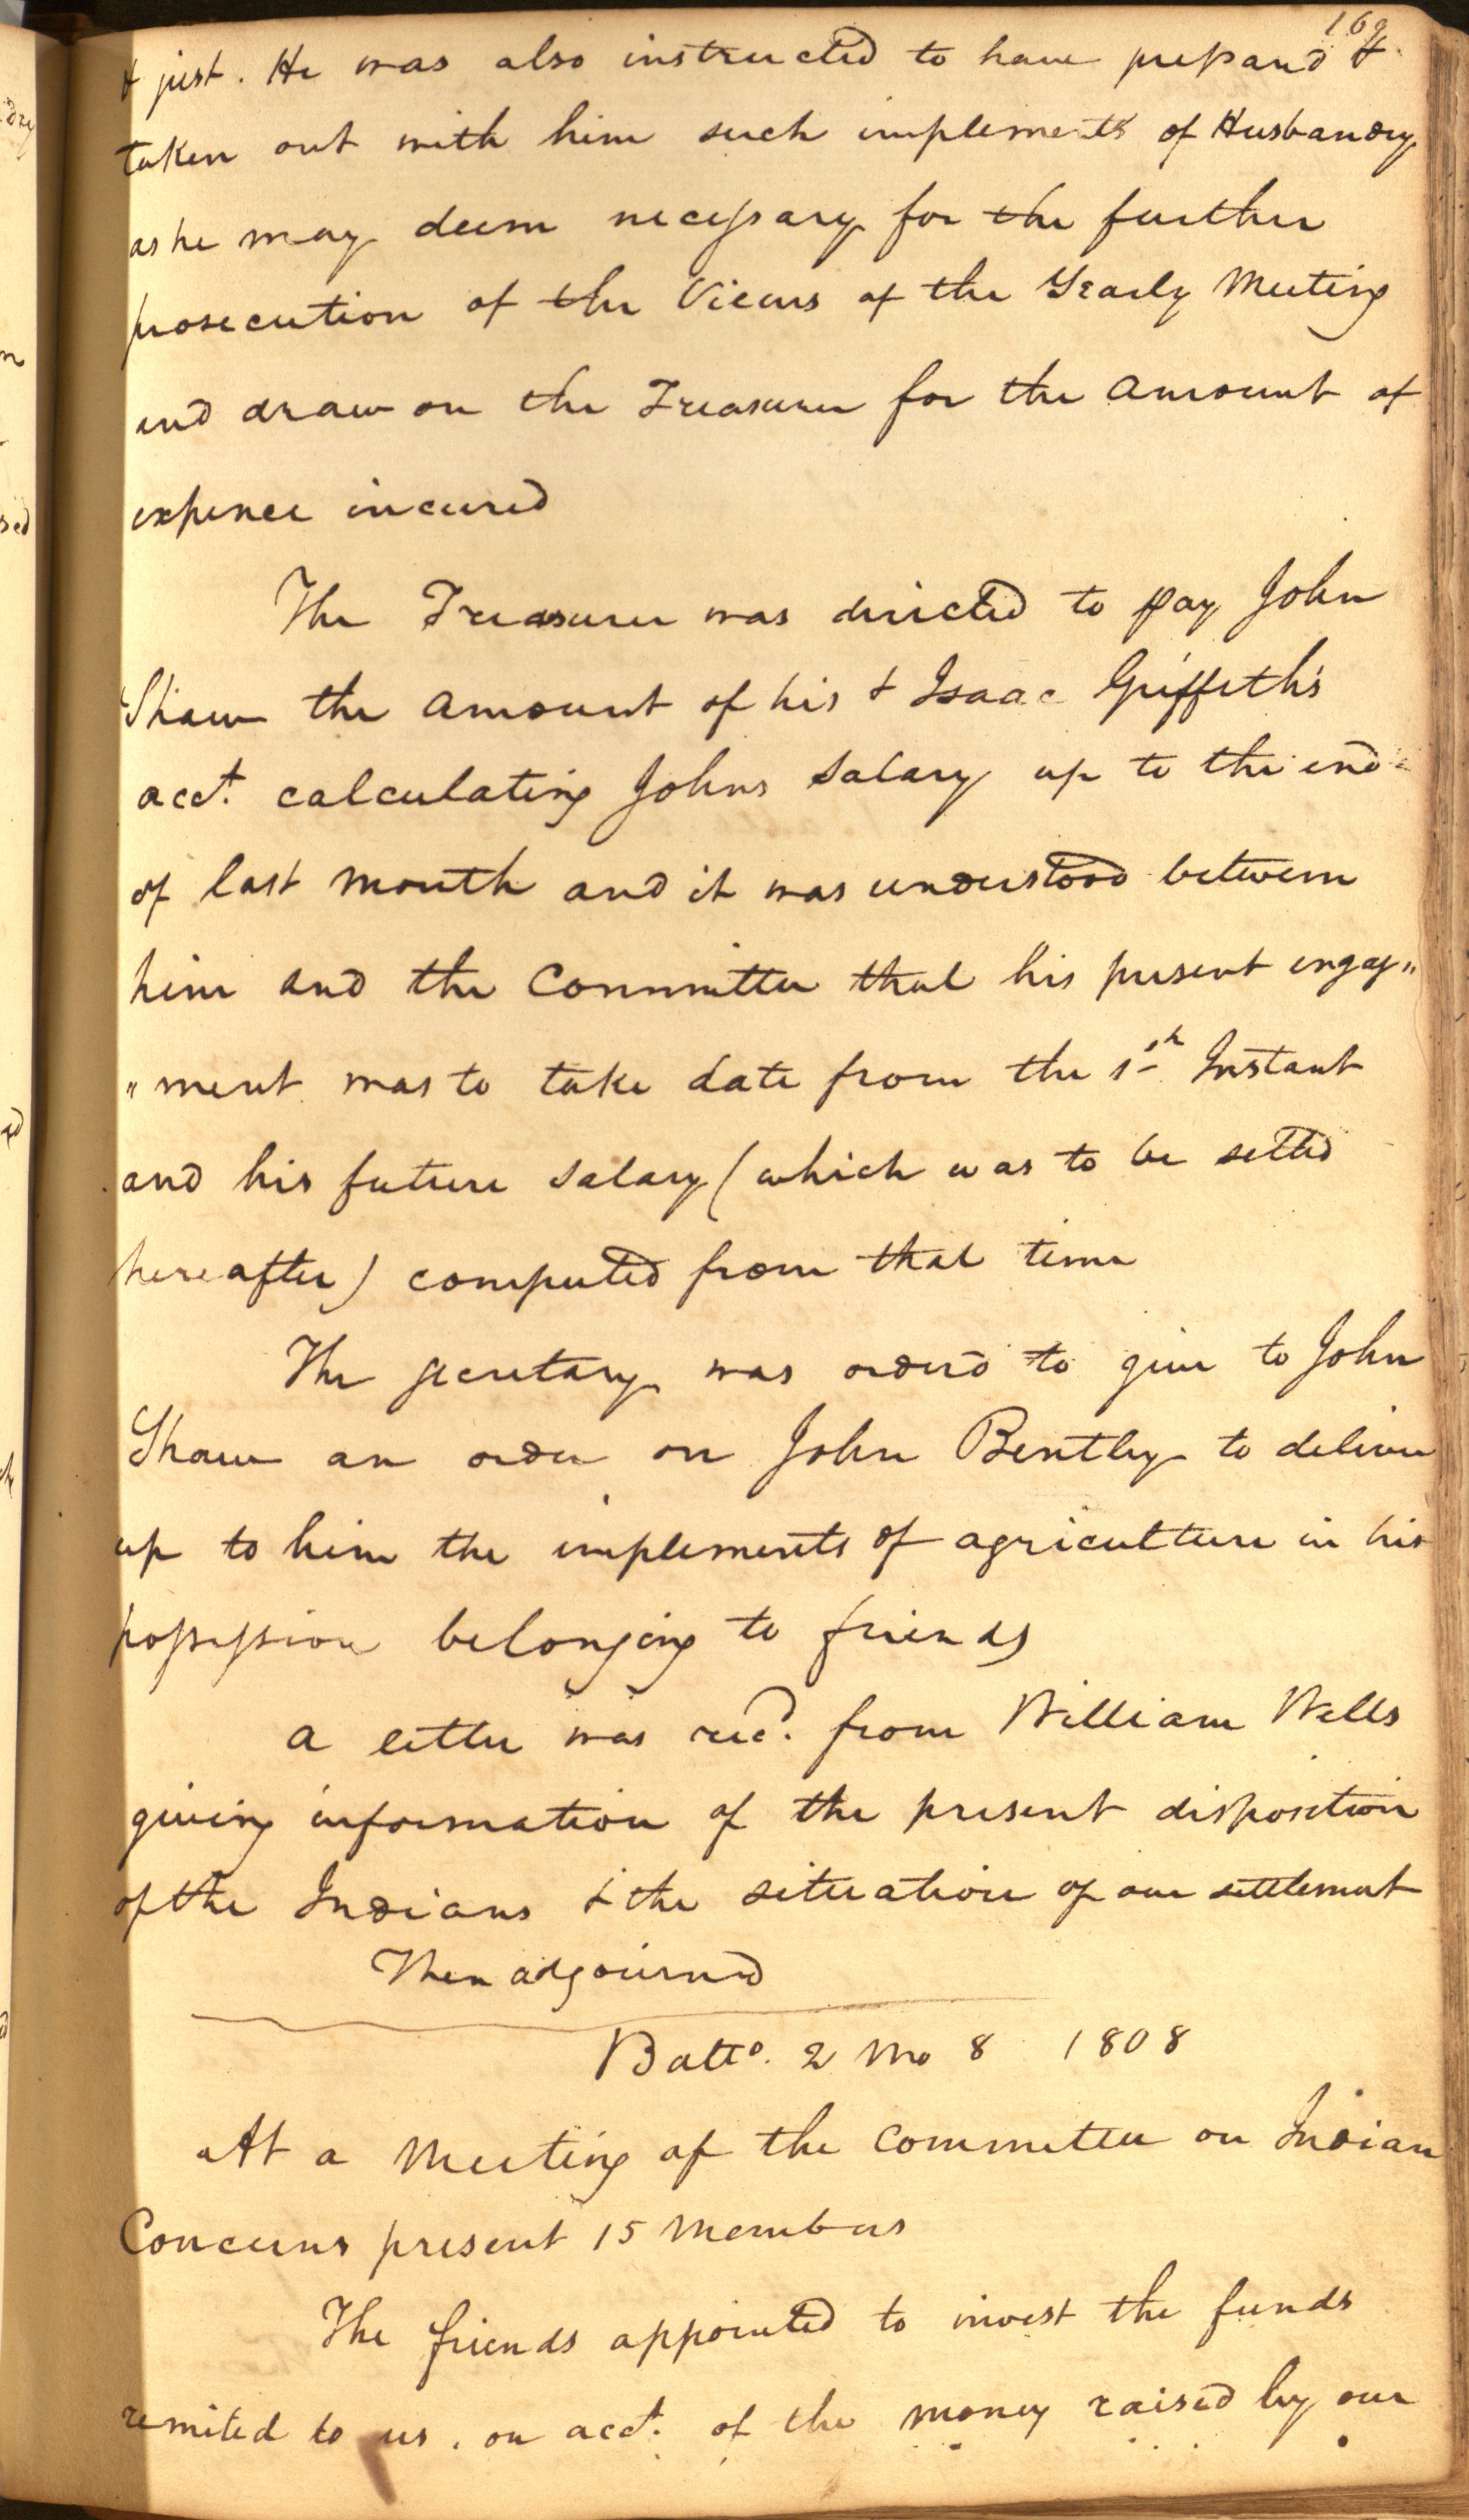 169
& just. He was also instructed to have prepared &
taken out with him such implements of Husbandry
as he may deem necessary for the further
prosecution of the Views of the Yearly Meeting
and draw on the Treasurer for the amount of
expence incured
The Treasurer was directed to pay John
Shaw the amount of his & Isaac Griffeth's
acct. calculating Johns Salary up to the end
of last month and it was understood between
him and the Committee that his present engag"
"ment was to take date from the 1st Instant
and his future Salary (which was to be settled
hereafter) computed from that time
The secretary was order'd to give to John
Shaw an order on John Bentley to deliver
up to him the implements of agriculture in his
possession belonging to friends
a letter was recd. from William Wells
giving information of the present disposition
of the Indians & the situation of our settlement
Then adjourned
Balto. 2 mo 8 1808
At a Meeting of the Committee on Indian
Concerns present 15 Members
The friends appointed to invest the funds
remited to us, on acct. of the money raised by our